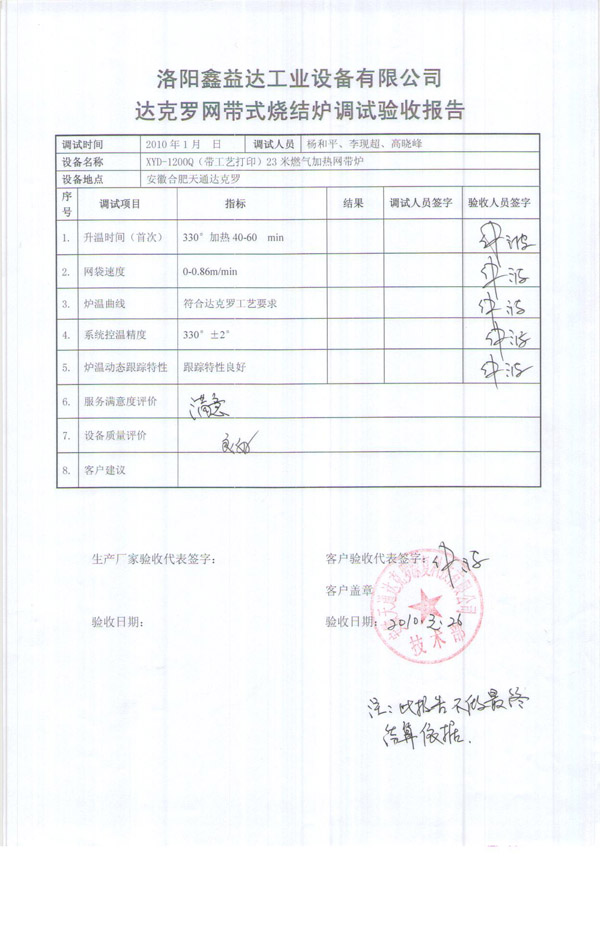 洛阳鑫益达工业设备有限公司
达克罗网带式烧结炉调试验收报告
调试时间 2010年1月 日 调试人员 杨和平、李现超、高晓峰
设备名称 XYD-1200Q（带工艺打印）23米燃气加热网带炉
设备地点 安徽合肥天通达克罗
序号 调试项目 指标 结果 调试人员签字 验收人员签字
1. 升温时间（首次） 330°加热40-60 min
2. 网袋速度 0-0.86m/min
3. 炉温曲线 符合达克罗工艺要求
4. 系统控温精度 330°±2°
5. 炉温动态跟踪特性 跟踪特性良好
6. 服务满意度评价 满意
7. 设备质量评价 良好
8. 客户建议
生产厂家验收代表签字： 客户验收代表签字：
客户盖章
验收日期： 验收日期：2010.3.26
技术部
注：此报告不做最终
结算依据.